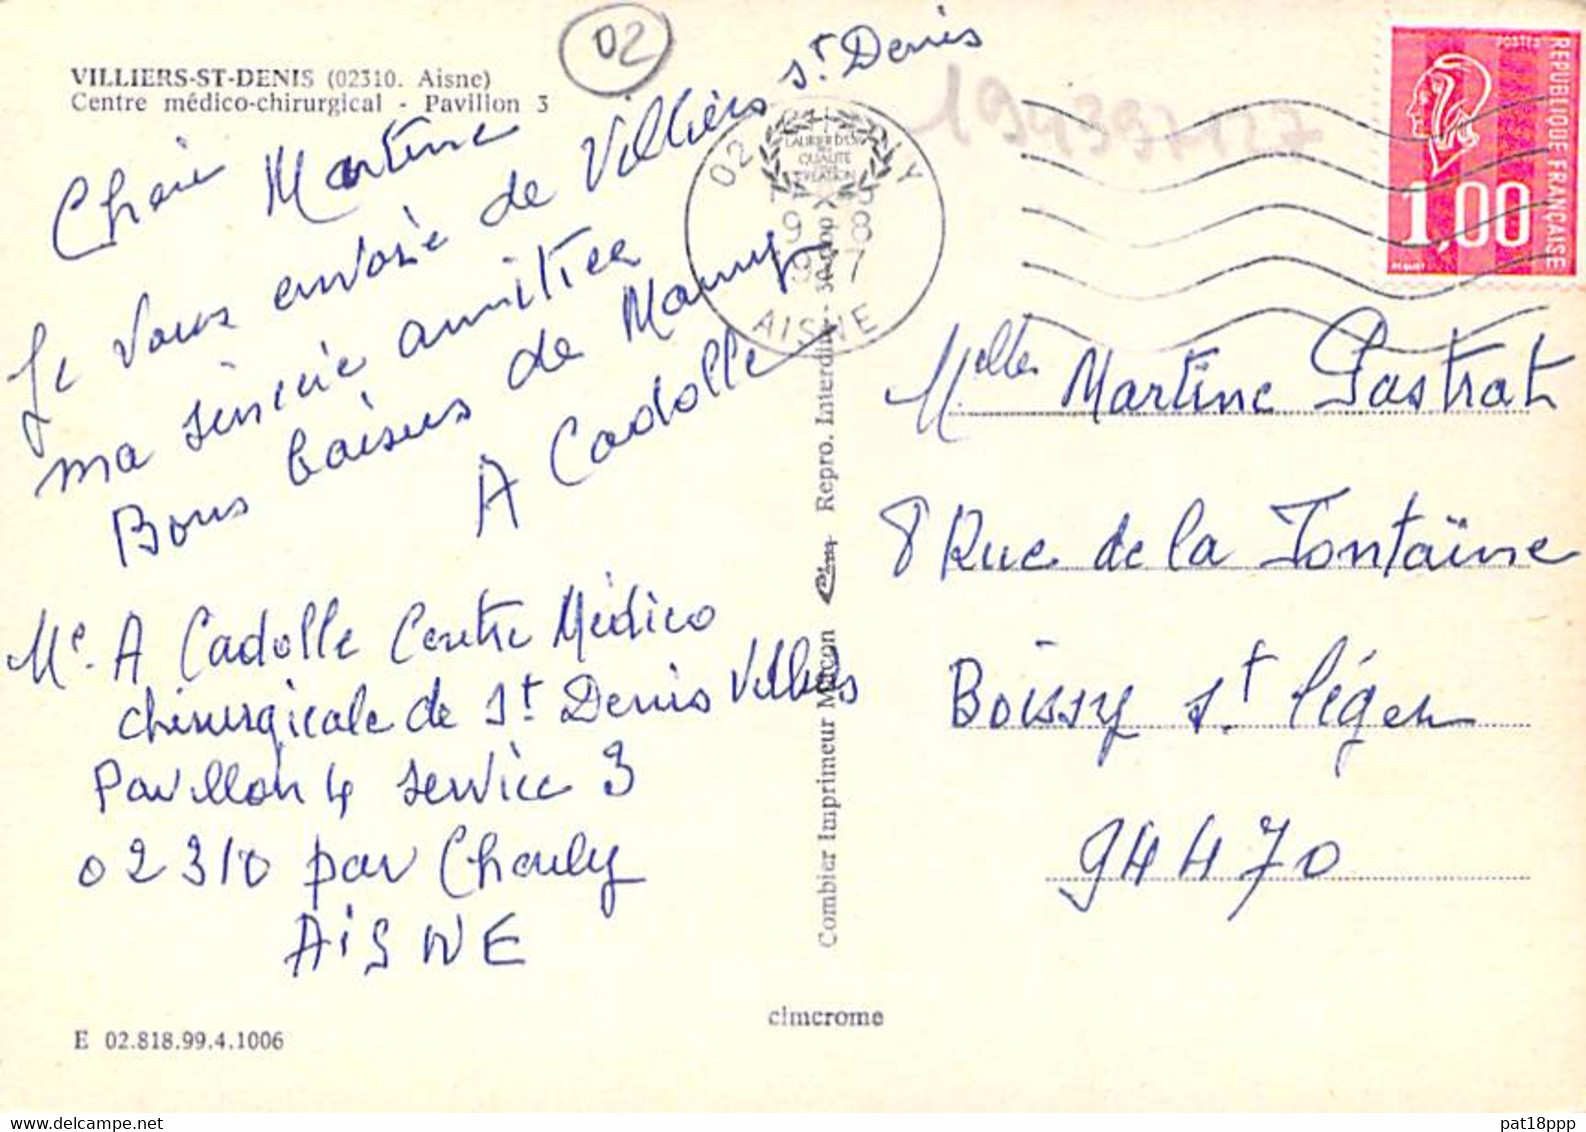 VILLIERS-ST-DENIS (02310. Aisne)
Centre médico-chirurgical - Pavillon 3
02
Cherie Martine
Je vous envoie de Villiers St Denis
ma sincérie amitiée
Bons baisers de Mamy
A Cadolle
Me. A Cadolle Centre Médico
chirurgicale de St Denis Villiers
Pavillon 4 service 3
02310 par Charly
AiSNE
E 02.818.99.4.1006
LAURIER D'OR
QUALITE
9 - 8
1977
AISNE
Combier Imprimeur Mâcon Cim Repro. Interdite
cimcrome
POSTES
REPUBLIQUE FRANÇAISE
1,00
194397127
Melle Martine Pastrat
8 Rue de la Fontaïne
Boissy St Léger
94470
pat18ppp